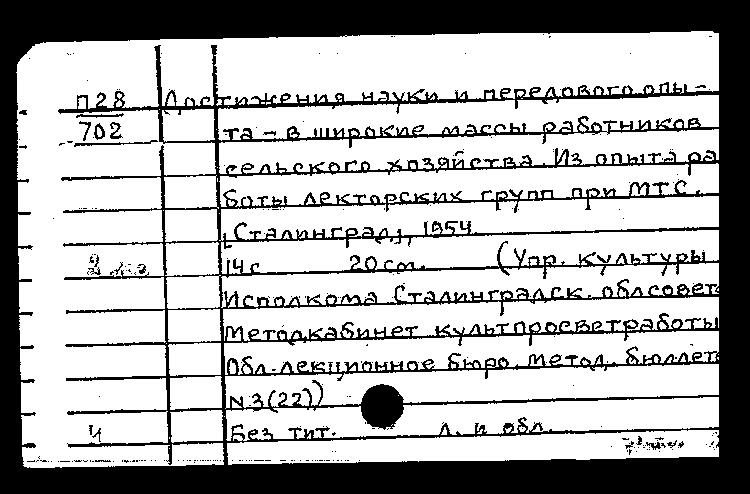 П28 Достижения науки и передового опы-
702 та - в широкие массы работников
сельского хозяйства. Из опыта ра
боты лекторских групп при МТС.
[Сталинград], 1954.
2 экз 14с 20см. (Упр. культуры
Исполкома Сталинградск. облсовет
Методкабинет культпросветработы
Обл. лекционное бюро. Метод. бюллет
N3(22))
Ч Без тит. л. и обл.